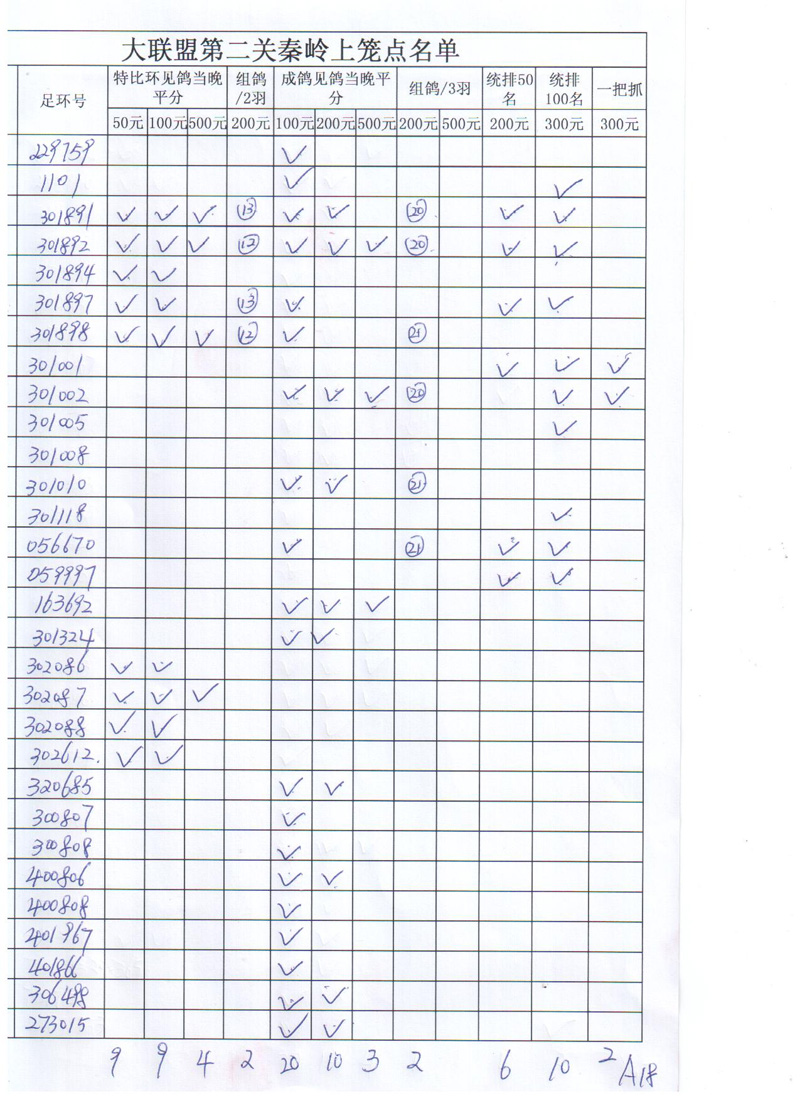 大联盟第二关秦岭上笼点名单
足环号 特比环见鸽当晚平分 组鸽/2羽 成鸽见鸽当晚平分 组鸽/3羽 统排50名 统排100名 一把抓
50元 100元 500元 200元 100元 200元 500元 200元 500元 200元 300元 300元
229759 ✓
1101 ✓ ✓
301891 ✓ ✓ ✓ ⑬ ✓ ✓ ⑳ ✓ ✓
301892 ✓ ✓ ✓ ⑫ ✓ ✓ ✓ ⑳ ✓ ✓
301894 ✓ ✓
301897 ✓ ✓ ⑬ ✓ ✓ ✓
301898 ✓ ✓ ✓ ⑫ ✓ ㉑
301001 ✓ ✓ ✓
301002 ✓ ✓ ✓ ⑳ ✓ ✓
301005 ✓
301008
301010 ✓ ✓ ㉑
301118 ✓
056670 ✓ ㉑ ✓ ✓
059997 ✓ ✓
163692 ✓ ✓ ✓
301324 ✓ ✓
302086 ✓ ✓
302087 ✓ ✓ ✓
302088 ✓ ✓
302612. ✓ ✓
320685 ✓ ✓
300807 ✓
300808 ✓
400806 ✓ ✓
400808 ✓
401867 ✓
401866 ✓
306498 ✓ ✓
273015 ✓ ✓
9 9 4 2 20 10 3 2 6 10 2 A18